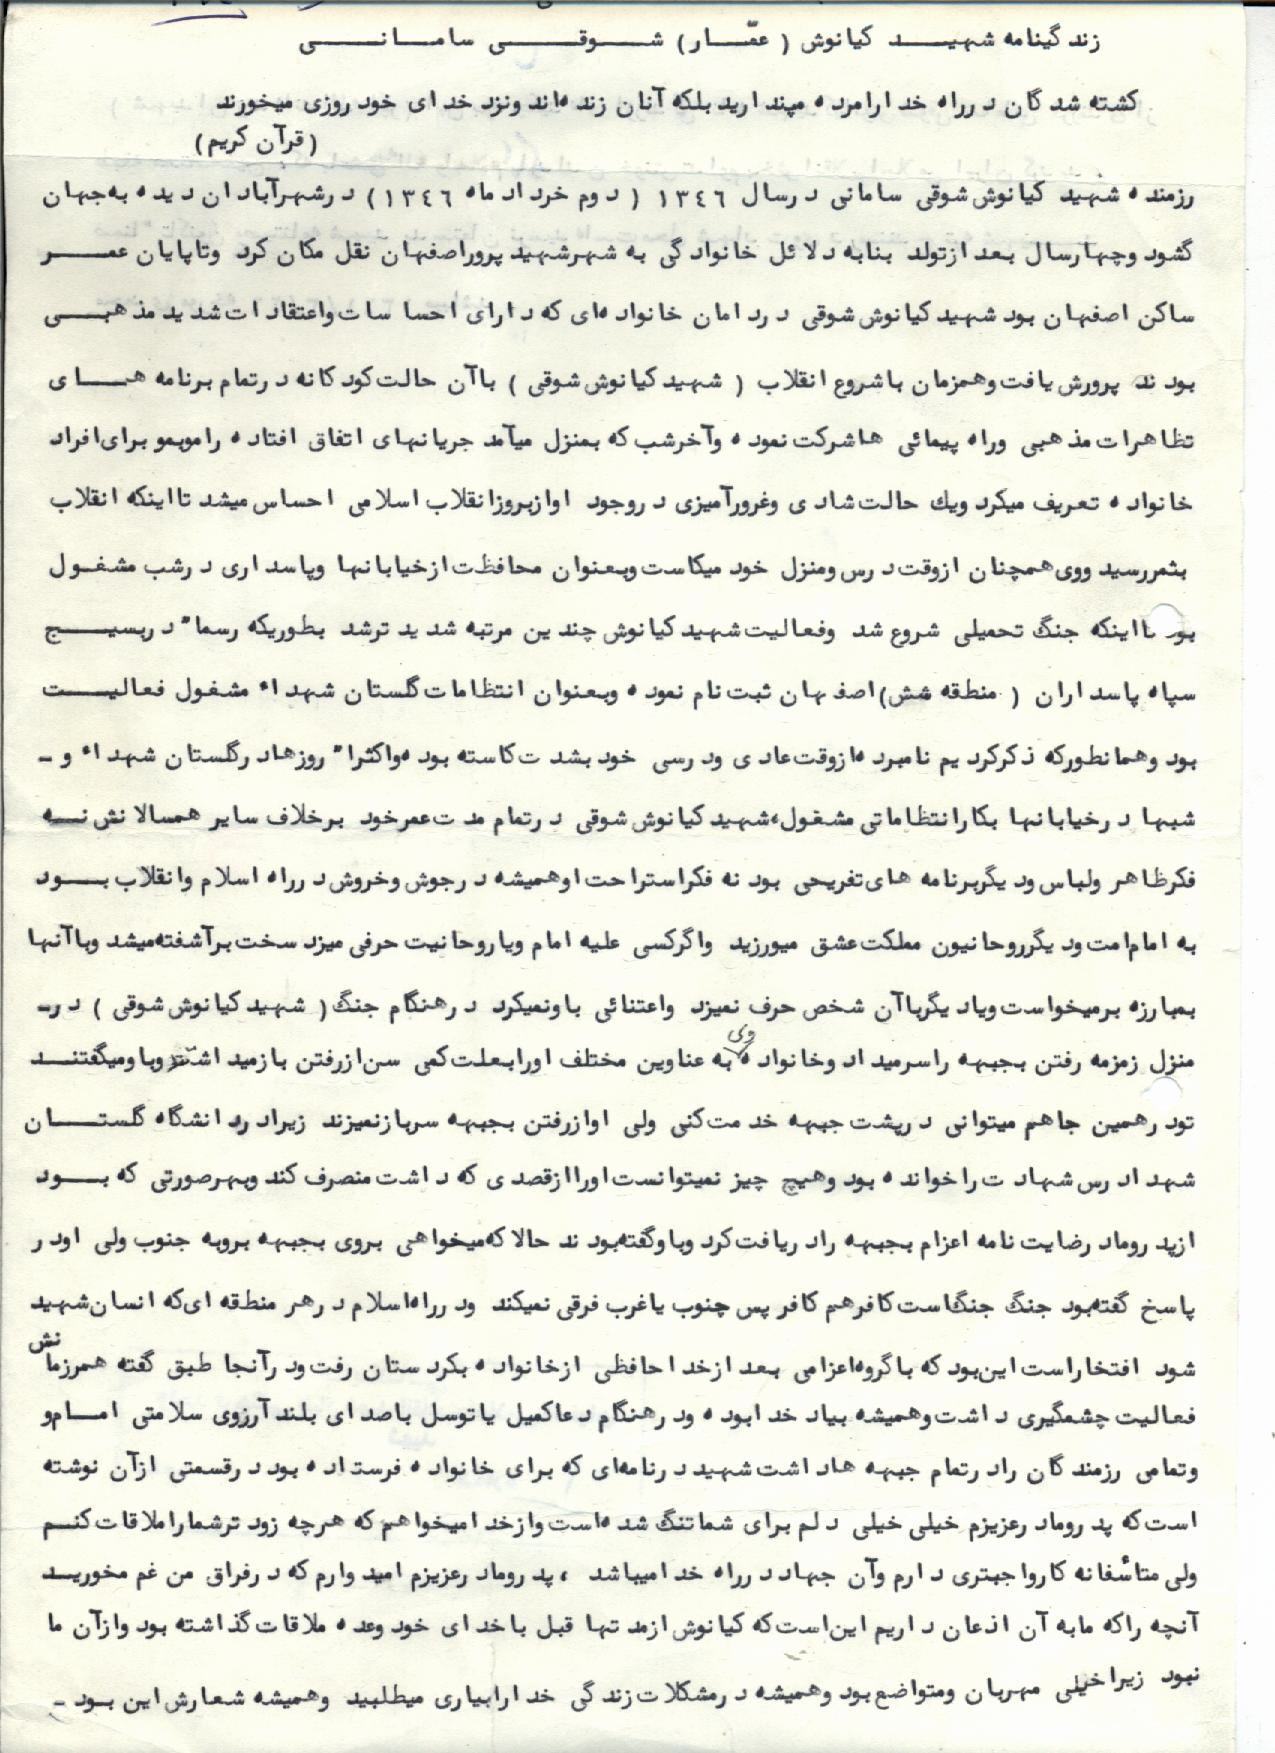 زندگینامه شهید کیانوش (عمّار) شوقی سامانی
کشته شدگان در راه خدا را مرده مپندارید بلکه آنان زنده‌اند و نزد خدای خود روزی میخورند
(قرآن کریم)
رزمنده شهید کیانوش شوقی سامانی در سال ۱۳٤٦ (دوم خرداد ماه ۱۳٤٦) در شهر آبادان دیده به جهان
گشود و چهار سال بعد از تولد بنا به دلائل خانوادگی به شهر شهید پرور اصفهان نقل مکان کرد و تا پایان عمر
ساکن اصفهان بود شهید کیانوش شوقی در دامان خانواده‌ای که دارای احساسات و اعتقادات شدید مذهبی
بودند پرورش یافت و همزمان با شروع انقلاب (شهید کیانوش شوقی) با آن حالت کودکانه در تمام برنامه های
تظاهرات مذهبی و راه پیمائی ها شرکت نموده و آخر شب که بمنزل میآمد جریانهای اتفاق افتاده را موبمو برای افراد
خانواده تعریف میکرد و یك حالت شادی و غرور آمیزی در وجود او از بروز انقلاب اسلامی احساس میشد تا اینکه انقلاب
بثمر رسید و وی همچنان از وقت درس و منزل خود میکاست و بعنوان محافظت از خیابانها و پاسداری در شب مشغول
بود تا اینکه جنگ تحمیلی شروع شد و فعالیت شهید کیانوش چندین مرتبه شدید تر شد بطوریکه رسماً در بسیج
سپاه پاسداران (منطقه شش) اصفهان ثبت نام نموده و بعنوان انتظامات گلستان شهداء مشغول فعالیت
بود و همانطور که ذکر کردیم نامبرده از وقت عادی و درسی خود بشدت کاسته بوده و اکثراً روزها در گلستان شهداء و -
شبها در خیابانها بکار انتظاماتی مشغول، شهید کیانوش شوقی در تمام مدت عمر خود بر خلاف سایر همسالانش نه
فکر ظاهر و لباس و دیگر برنامه های تفریحی بود نه فکر استراحت او همیشه در جوش و خروش در راه اسلام و انقلاب بود
به امام امت و دیگر روحانیون مملکت عشق میورزید و اگر کسی علیه امام و یا روحانیت حرفی میزد سخت بر آشفته میشد و با آنها
بمبارزه بر میخواست و یا دیگر با آن شخص حرف نمیزد و اعتنائی باو نمیکرد در هنگام جنگ (شهید کیانوش شوقی) در -
منزل زمزمه رفتن بجبهه را سر میداد و خانواده وی به عناوین مختلف او را بعلت کمی سن از رفتن باز میداشتند و باو میگفتند
تو در همین جا هم میتوانی در پشت جبهه خدمت کنی ولی او از رفتن بجبهه سر باز نمیزند زیرا در دانشگاه گلستان
شهدا درس شهادت را خوانده بود و هیچ چیز نمیتوانست او را از قصدی که داشت منصرف کند و بهر صورتی که بود
از پدر و مادر رضایت نامه اعزام بجبهه را دریافت کرد و باو گفته بودند حالا که میخواهی بروی بجبهه برو به جنوب ولی او در
پاسخ گفته بود جنگ جنگ است کافر هم کافر پس جنوب یا غرب فرقی نمیکند و در راه اسلام در هر منطقه ای که انسان شهید
شود افتخار است این بود که با گروه اعزامی بعد از خداحافظی از خانواده بکردستان رفت و در آنجا طبق گفته همرزمانش
فعالیت چشمگیری داشت و همیشه بیاد خدا بوده و در هنگام دعا کمیل یا توسل با صدای بلند آرزوی سلامتی امام و
و تمامی رزمندگان را در تمام جبهه ها داشت شهید در نامه‌ای که برای خانواده فرستاده بود در قسمتی از آن نوشته
است که پدر و مادر عزیزم خیلی خیلی دلم برای شما تنگ شده است و از خدا میخواهم که هر چه زود تر شما را ملاقات کنم
ولی متأسفانه کار واجبتری دارم و آن جهاد در راه خدا میباشد، پدر و مادر عزیزم امیدوارم که در فراق من غم مخورید
آنچه را که ما به آن اذعان داریم این است که کیانوش از مدتها قبل با خدای خود وعده ملاقات گذاشته بود و از آن ما
نبود زیرا خیلی مهربان و متواضع بود و همیشه در مشکلات زندگی خدا را بیاری میطلبید و همیشه شعارش این بود -